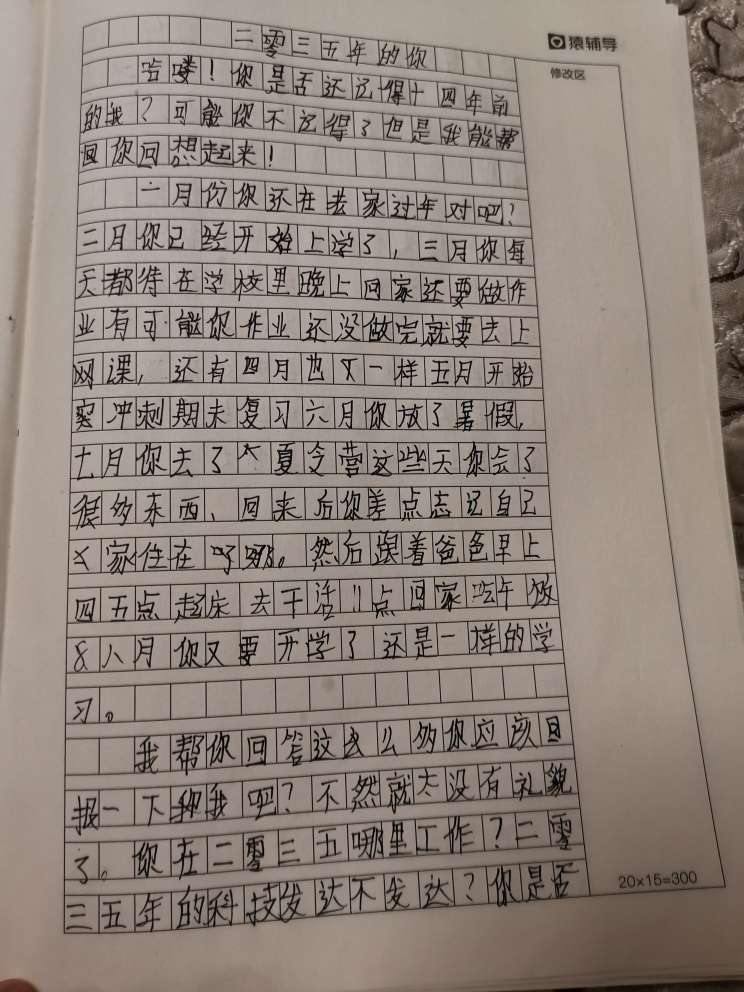 二零三五年的你
猿辅导
修改区
哈喽！你是否还记得十四年前
的我？可能你不记得了但是我能帮
回你回想起来！
一月份你还在老家过年对吧？
二月你已经开始上学了，三月你每
天都待在学校里晚上回家还要做作
业有可能你作业还没做完就要去上
网课，还有四月也又一样五月开始
冲刺期末复习六月你放了暑假，
七月你去了夏令营这些天你会了
很多东西、回来后你差点忘记自己
家住在哪。然后跟着爸爸早上
四五点起床去干活11点回家吃午饭
八月你又要开学了还是一样的学
习。
我帮你回答这么多你应该回
报一下我吧？不然就太没有礼貌
了。你在二零三五哪里工作？二零
三五年的科技发达不发达？你是否
20×15=300